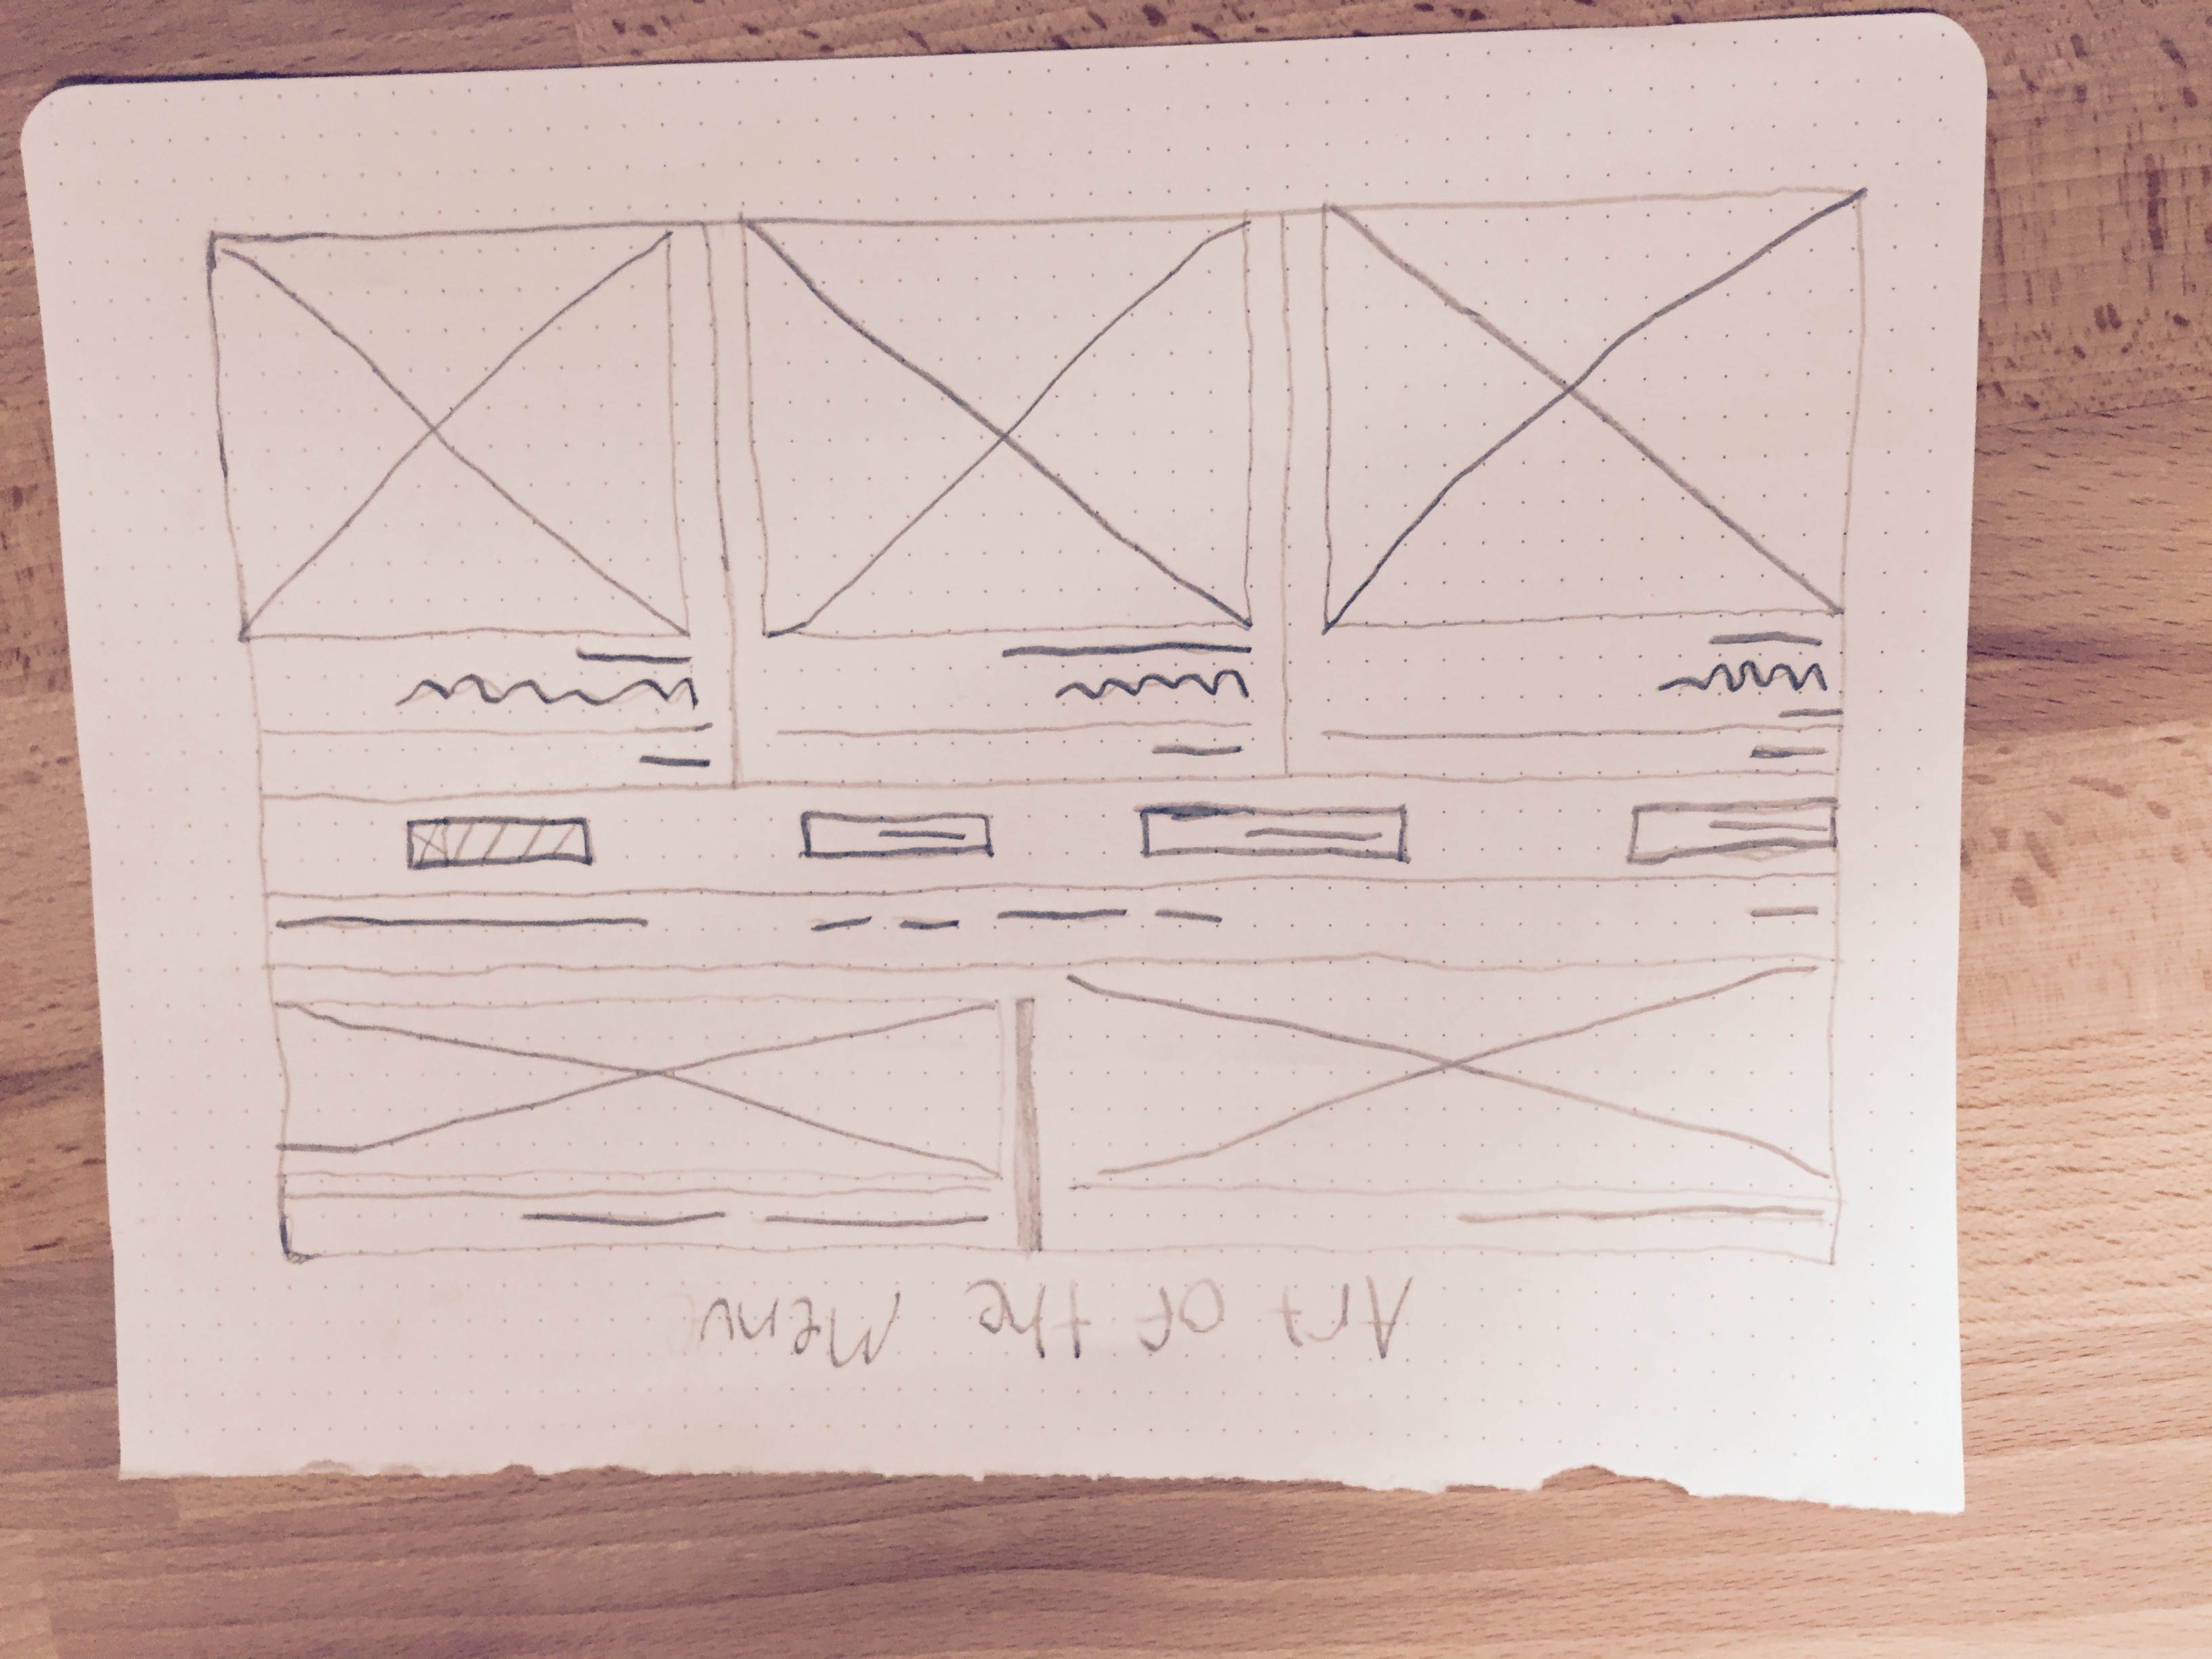 Art of the Menu